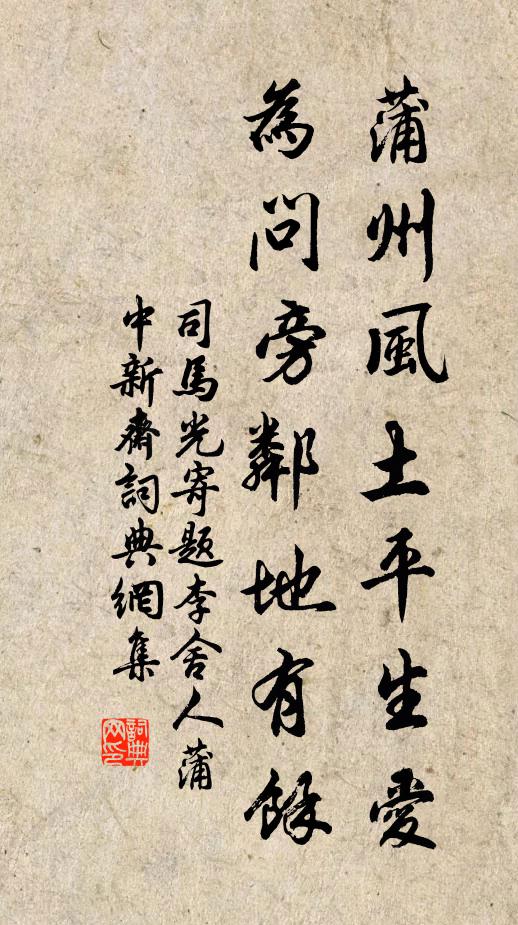 蒲州風土平生愛
為問旁鄰地有餘
司馬光寄題李舍人蒲
中新齋詞典網集
詞典网印